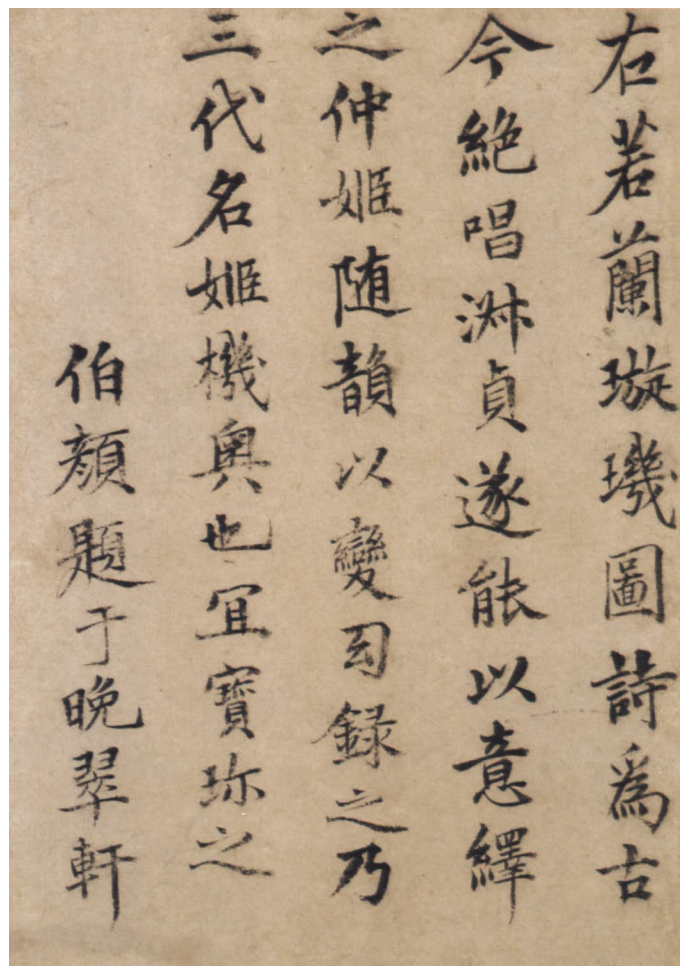 右若蘭璇璣圖詩爲古
今絶唱淋貞遂能以意繹
之仲姬随韻以變司録之乃
三代名姬機奥也冝寳珎之
伯顔題于晚翠軒